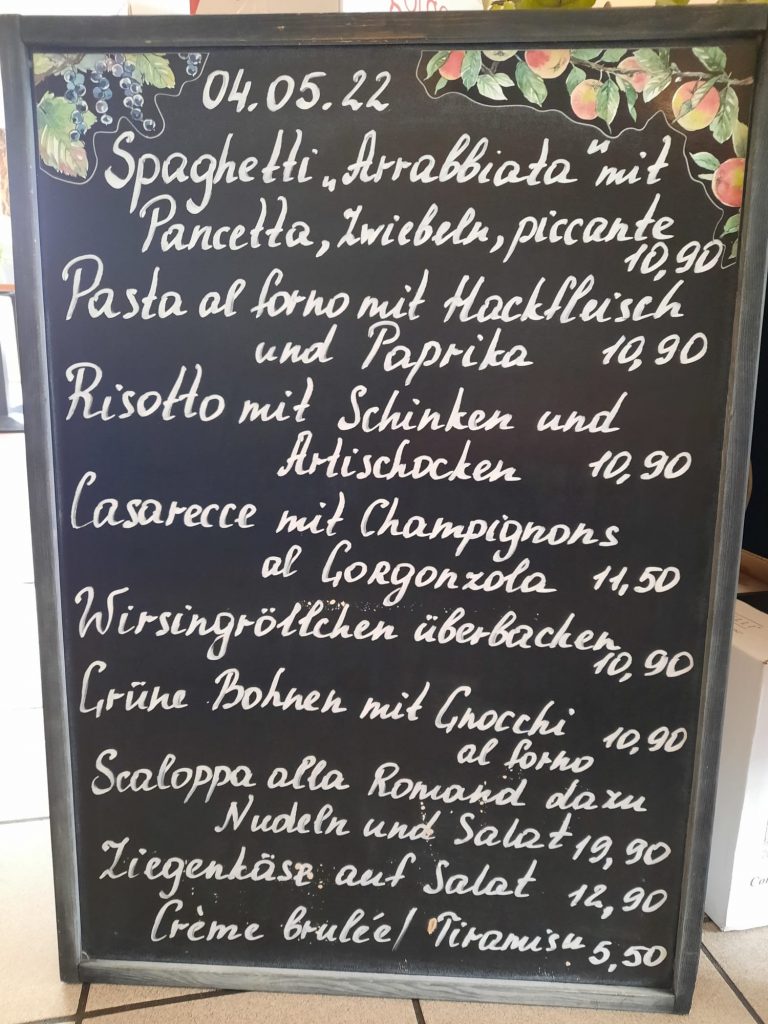 04.05.22
Spaghetti „Arrabbiata“ mit
Pancetta, Zwiebeln, piccante
10,90
Pasta al forno mit Hackfleisch
und Paprika 10,90
Risotto mit Schinken und
Artischocken 10,90
Casarecce mit Champignons
al Gorgonzola 11,50
Wirsingröllchen überbacken
10,90
Grüne Bohnen mit Gnocchi
al forno 10,90
Scaloppa alla Romana dazu
Nudeln und Salat 19,90
Ziegenkäse auf Salat 12,90
Crème brulée/ Tiramisu 5,50